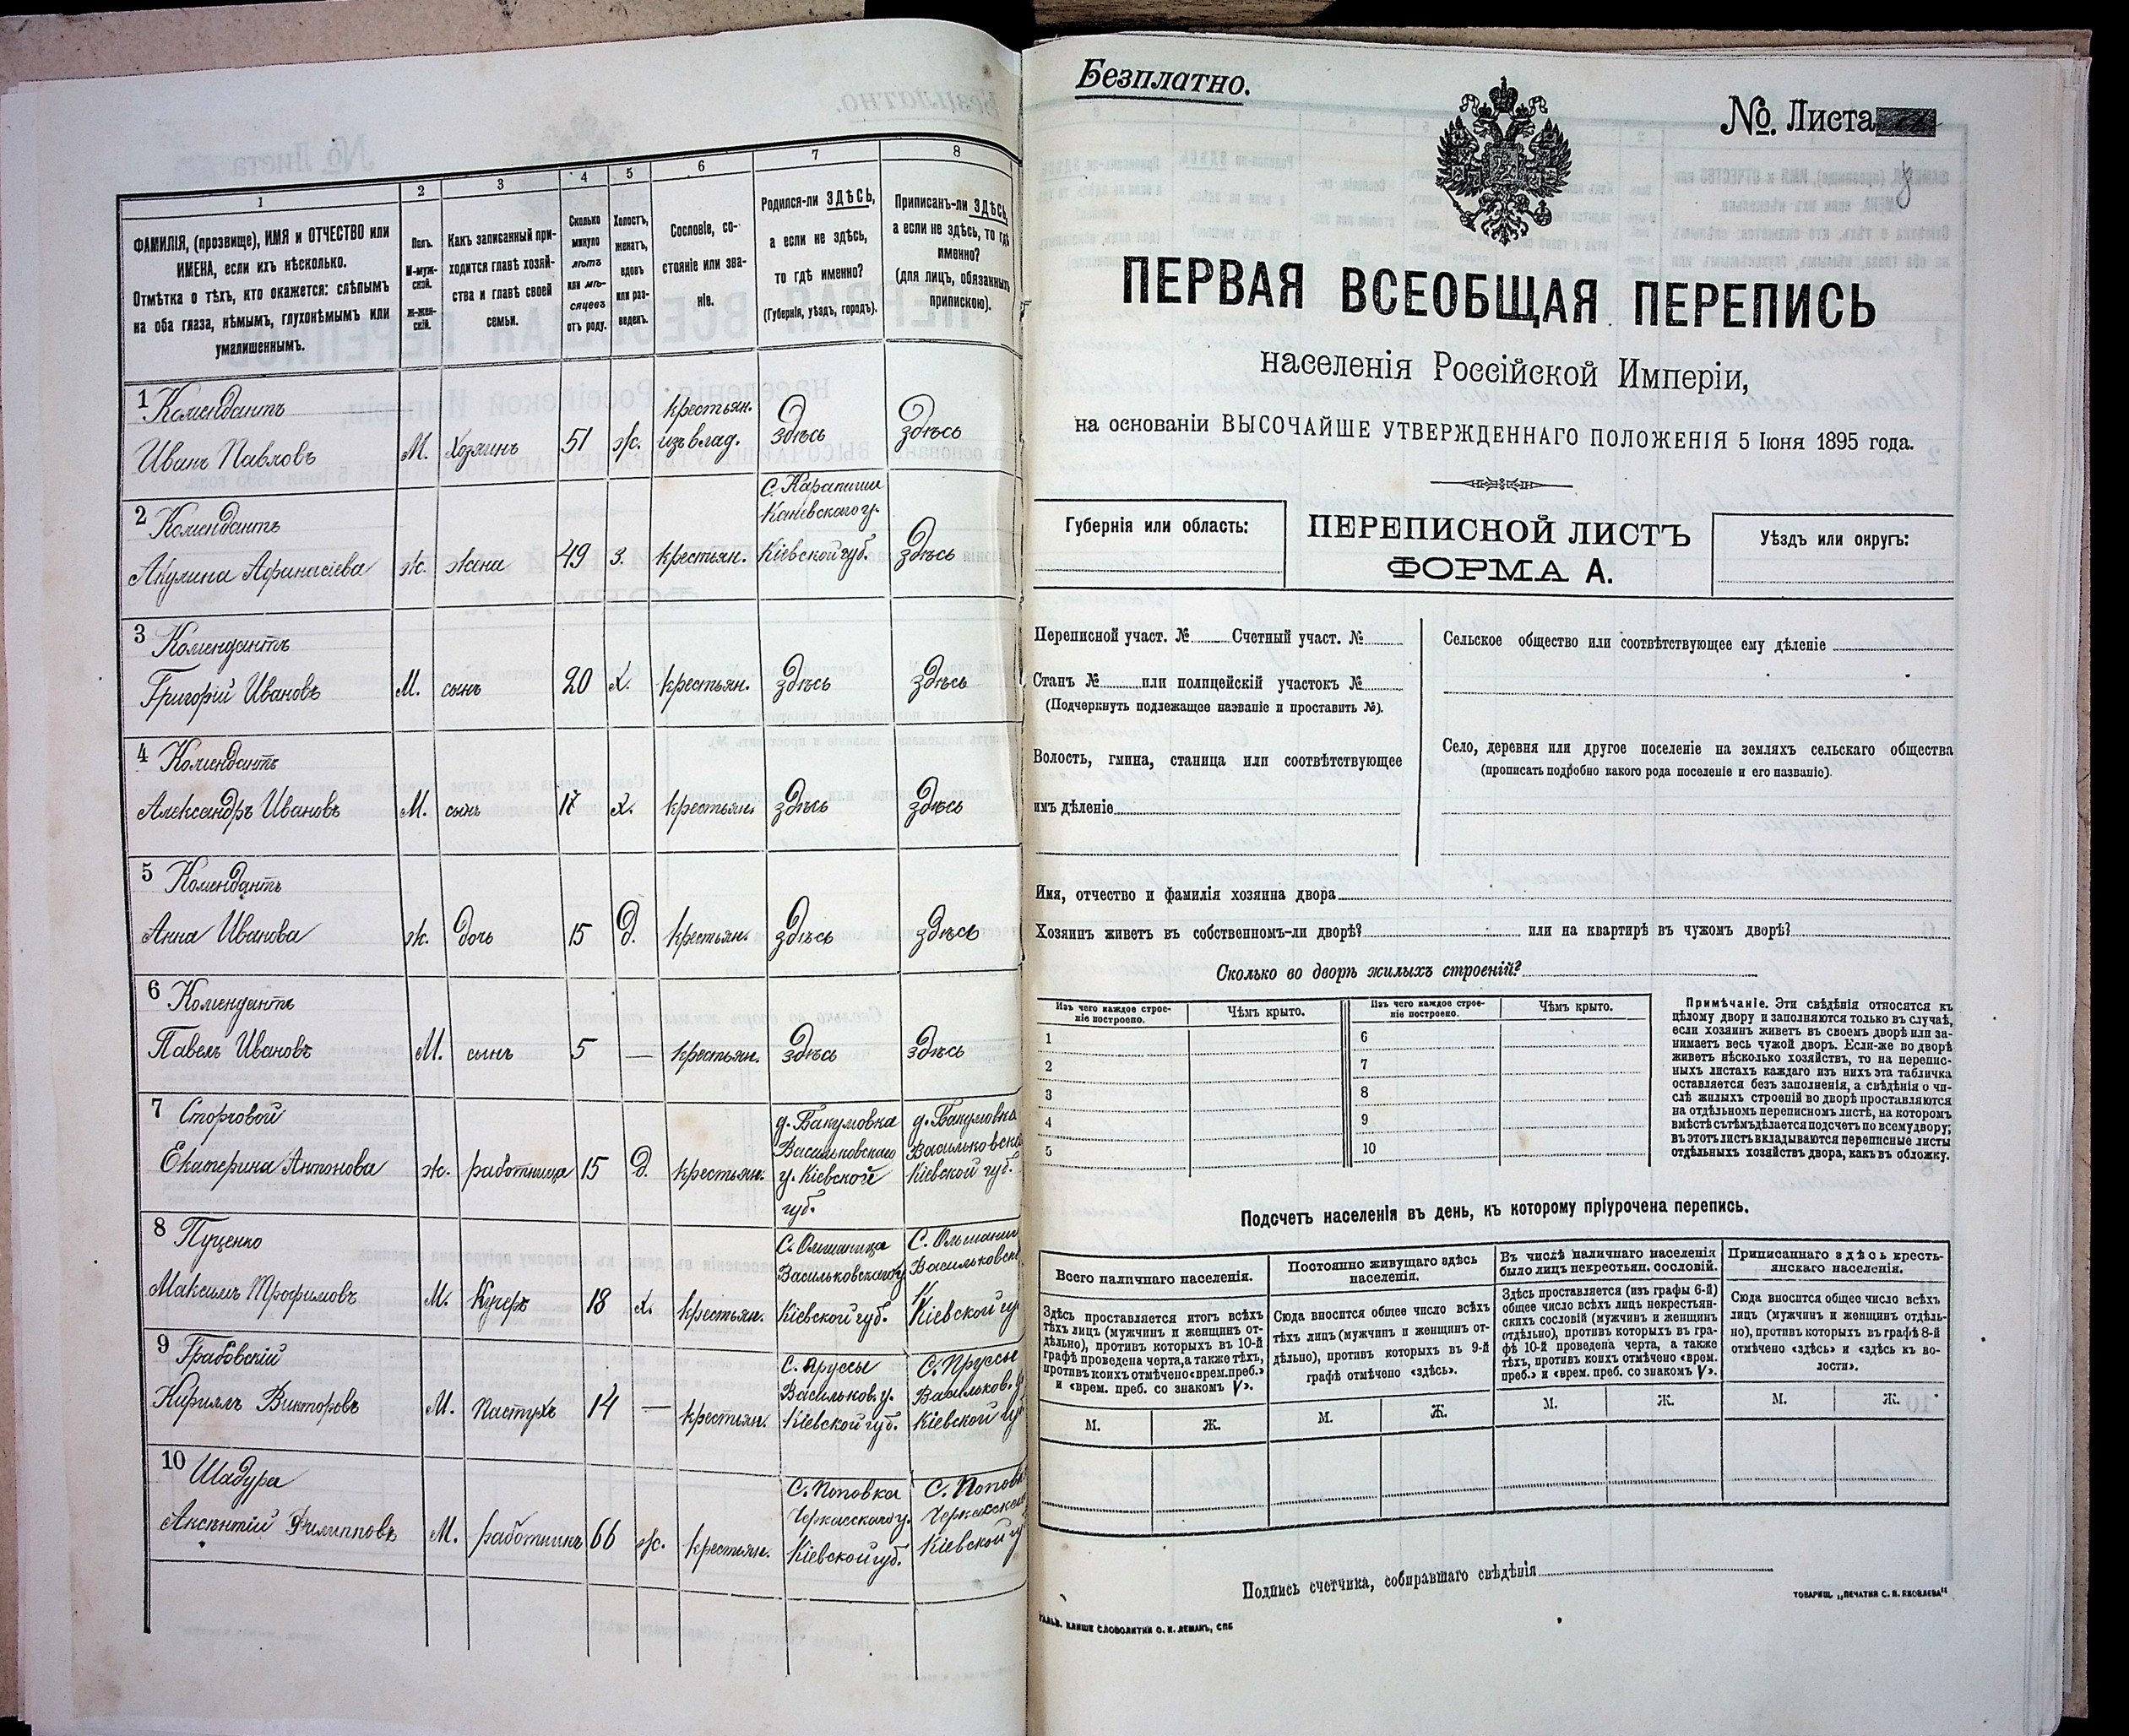 1
2
3
4
5
6
7
8
ФАМИЛІЯ, (прозвище), ИМЯ и ОТЧЕСТВО или
ИМЕНА, если ихъ нѣсколько.
Отмѣтка о тѣхъ, кто окажется: слѣпымъ
на оба глаза, нѣмымъ, глухонѣмымъ или
умалишеннымъ.
Полъ.
М-муж-
ской.
Ж-жен-
скій.
Какъ записанный при-
ходится главѣ хозяй-
ства и главѣ своей
семьи.
Сколько
минуло
лѣтъ
или мѣ-
сяцевъ
отъ роду.
Холостъ,
женатъ,
вдовъ
или раз-
веденъ.
Сословіе, со-
стояніе или зва-
ніе.
Родился-ли ЗДѢСЬ,
а если не здѣсь,
то гдѣ именно?
(Губернія, уѣздъ, городъ).
Приписанъ-ли ЗДѢСЬ,
а если не здѣсь, то гдѣ
именно?
(для лицъ, обязанныхъ
припискою).
1 Комендантъ
Иванъ Павловъ
М.
Хозяинъ
51
ж.
крестьян.
изъ влад.
здѣсь
здѣсь
2 Комендантъ
Акулина Афанасіева
ж.
жена
49
з.
крестьян.
С. Карапиши
Каневскаго у.
Кіевской губ.
здѣсь
3 Комендантъ
Григорій Ивановъ
М.
сынъ
20
Х.
крестьян.
здѣсь
здѣсь
4 Комендантъ
Александръ Ивановъ
М.
сынъ
Х.
крестьян.
здѣсь
здѣсь
5 Комендантъ
Анна Иванова
ж.
дочь
15
Д.
крестьян.
здѣсь
здѣсь
6 Комендантъ
Павелъ Ивановъ
М.
сынъ
5
—
крестьян.
здѣсь
здѣсь
7 Сторговой
Екатерина Антонова
ж.
работница
15
Д.
крестьян.
д. Вакумовка
Васильковскаго
у. Кіевской
губ.
д. Вакумовка
Васильковска
Кіевской губ.
8 Пуценко
Максимъ Трофимовъ
М.
Кучеръ
18
х.
крестьян.
С. Ольшаница
Васильковскаго у.
Кіевской губ.
С. Ольшани
Васильковск
у.
Кіевской гу
9 Грабовскій
Кириллъ Викторовъ
М.
Пастухъ
14
—
крестьян.
С. Пруссы
Васильков. у.
Кіевской губ.
С. Пруссы
Васильков. у
Кіевской гу
10 Шадура
Аксентій Филипповъ
М.
работникъ
66
ж.
крестьян.
С. Поповка
Черкасскаго у.
Кіевской губ.
С. Попов
Черкасскаго
Кіевской гу
Безплатно.
№. Листа
8
ПЕРВАЯ ВСЕОБЩАЯ ПЕРЕПИСЬ
населенія Россійской Имперіи,
на основаніи ВЫСОЧАЙШЕ УТВЕРЖДЕННАГО ПОЛОЖЕНІЯ 5 Іюня 1895 года.
Губернія или область:
ПЕРЕПИСНОЙ ЛИСТЪ
ФОРМА А.
Уѣздъ или округъ:
Переписной участ. № Счетный участ. №
Станъ № или полицейскій участокъ №
(Подчеркнуть подлежащее названіе и проставить №).
Волость, гмина, станица или соотвѣтствующее
имъ дѣленіе
Сельское общество или соотвѣтствующее ему дѣленіе
Село, деревня или другое поселеніе на земляхъ сельскаго общества
(прописать подробно какого рода поселеніе и его названіе)
Имя, отчество и фамилія хозяина двора
Хозяинъ живетъ въ собственномъ-ли дворѣ? или на квартирѣ въ чужомъ дворѣ?
Сколько во дворѣ жилыхъ строеній?
Изъ чего каждое строе-
ніе построено.
Чѣмъ крыто.
Изъ чего каждое строе-
ніе построено.
Чѣмъ крыто.
1
2
3
4
5
6
7
8
9
10
Примѣчаніе. Эти свѣдѣнія относятся къ
цѣлому двору и заполняются только въ случаѣ,
если хозяинъ живетъ въ своемъ дворѣ или за-
нимаетъ весь чужой дворъ. Если-же во дворѣ
живетъ нѣсколько хозяйствъ, то на перепис-
ныхъ листахъ каждаго изъ нихъ эта табличка
оставляется безъ заполненія, а свѣдѣнія о чи-
слѣ жилыхъ строеній во дворѣ проставляются
на отдѣльномъ переписномъ листѣ, на которомъ
вмѣстѣ съ тѣмъ дѣлается подсчетъ по всему двору;
въ этотъ листъ вкладываются переписные листы
отдѣльныхъ хозяйствъ двора, какъ въ обложку.
Подсчетъ населенія въ день, къ которому пріурочена перепись.
Всего наличнаго населенія.
Постоянно живущаго здѣсь
населенія.
Въ числѣ наличнаго населенія
было лицъ некрестьян. сословій.
Приписаннаго здѣсь кресть-
янскаго населенія.
Здѣсь проставляется итогъ всѣхъ
тѣхъ лицъ (мужчинъ и женщинъ от-
дѣльно), противъ которыхъ въ 10-й
графѣ проведена черта, а также тѣхъ,
противъ коихъ отмѣчено «врем. преб.»
и «врем. преб. со знакомъ V».
Сюда вносится общее число всѣхъ
тѣхъ лицъ (мужчинъ и женщинъ от-
дѣльно), противъ которыхъ въ 9-й
графѣ отмѣчено «здѣсь».
Здѣсь проставляется (изъ графы 6-й)
общее число всѣхъ лицъ некрестьян-
скихъ сословій (мужчинъ и женщинъ
отдѣльно), противъ которыхъ въ гра-
фѣ 10-й проведена черта, а также
тѣхъ, противъ коихъ отмѣчено «врем.
преб.» и «врем. преб. со знакомъ V».
Сюда вносится общее число всѣхъ
лицъ (мужчинъ и женщинъ отдѣль-
но), противъ которыхъ въ графѣ 8-й
отмѣчено «здѣсь» и «здѣсь къ во-
лости».
М.
Ж.
М.
Ж.
М.
Ж.
М.
Ж.
Подпись счетчика, собиравшаго свѣдѣнія
ТОВАРИЩ. „ПЕЧАТНЯ С. П. ЯКОВЛЕВА“
ГАЛЬВ. КЛИШЕ СЛОВОЛИТНИ О. И. ЛЕМАНЪ, СПБ